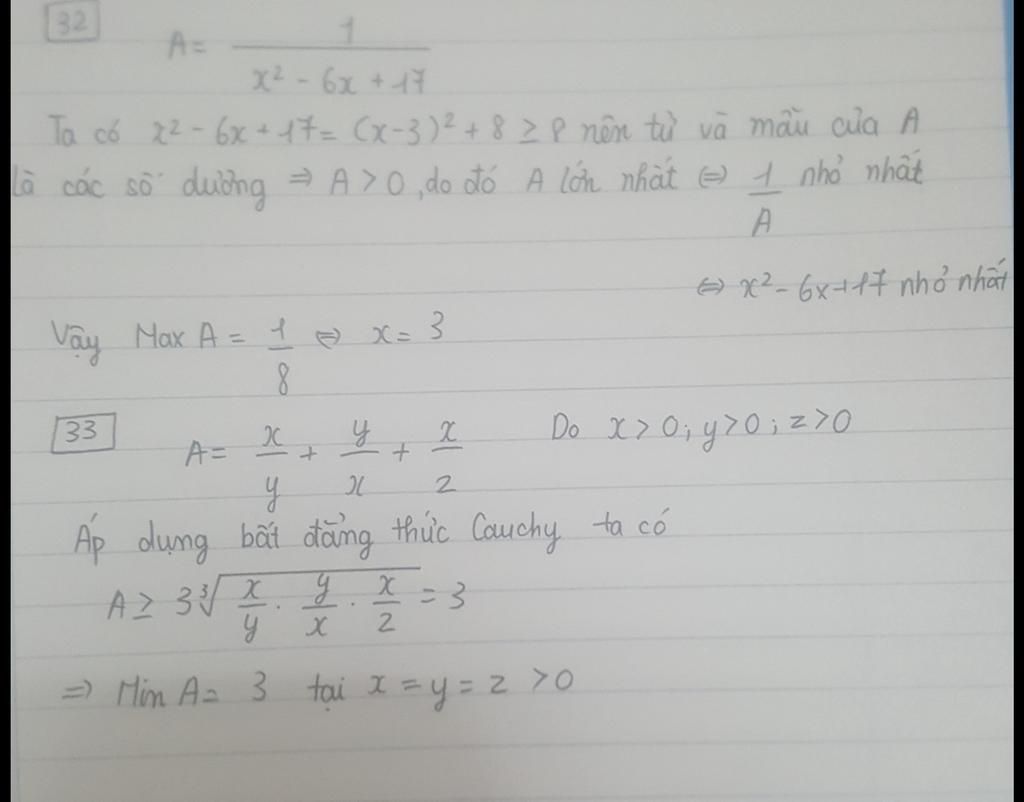 32
A = 1 / (x² - 6x + 17)
Ta có x² - 6x + 17 = (x-3)² + 8 ≥ 8 nên tử và mẫu của A
là các số dương ⇒ A > 0, do đó A lớn nhất ⇔ 1/A nhỏ nhất
⇔ x² - 6x + 17 nhỏ nhất
Vậy Max A = 1/8 ⇔ x = 3
33 A = x/y + y/x + x/2 Do x > 0; y > 0; z > 0
Áp dụng bất đẳng thức Cauchy ta có
A ≥ 3∛(x/y . y/x . x/2) = 3
⇒ Min A = 3 tại x = y = z > 0